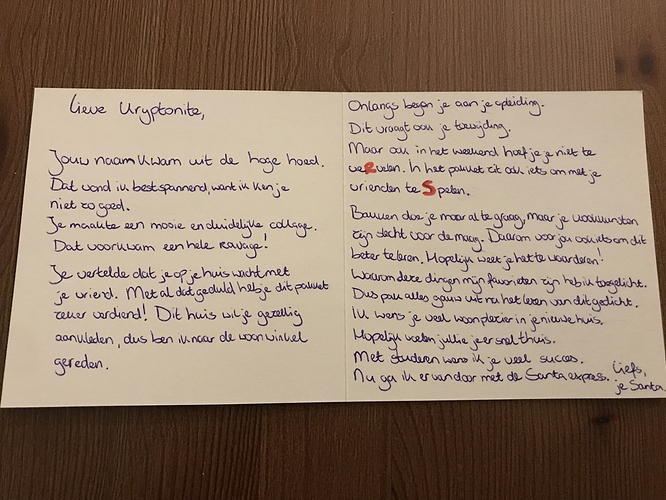 Lieve Kryptonite,
Jouw naam kwam uit de hoge hoed.
Dat vond ik best spannend, want ik ken je
niet zo goed.
Je maakte een mooie en duidelijke collage.
Dat voorkwam een hele ravage!
Je vertelde dat je op je huis wacht met
je vriend. Met al dat geduld heb je dit pakket
zeker verdiend! Dit huis wil je gezellig
aankleden, dus ben ik naar de woonwinkel
gereden.
Onlangs begon je aan je opleiding.
Dit vraagt ook je toewijding.
Maar ook in het weekend hoef je je niet te
veRvelen. In het pakket zit ook iets om met je
vrienden te Spelen.
Bakken doe je maar al te graag, maar je kookkunsten
zijn slecht voor de maag. Daarom voor jou ook iets om dit
beter te leren. Hopelijk weet je het te waarderen!
Waarom deze dingen mijn favorieten zijn heb ik toegelicht.
Dus pak alles gauw uit na het lezen van dit gedicht.
Ik wens je veel woonplezier in je nieuwe huis.
Hopelijk voelen jullie je er snel thuis.
Met studeren wens ik je veel succes.
Nu ga ik ervandoor met de Santa express.
Liefs,
je Santa